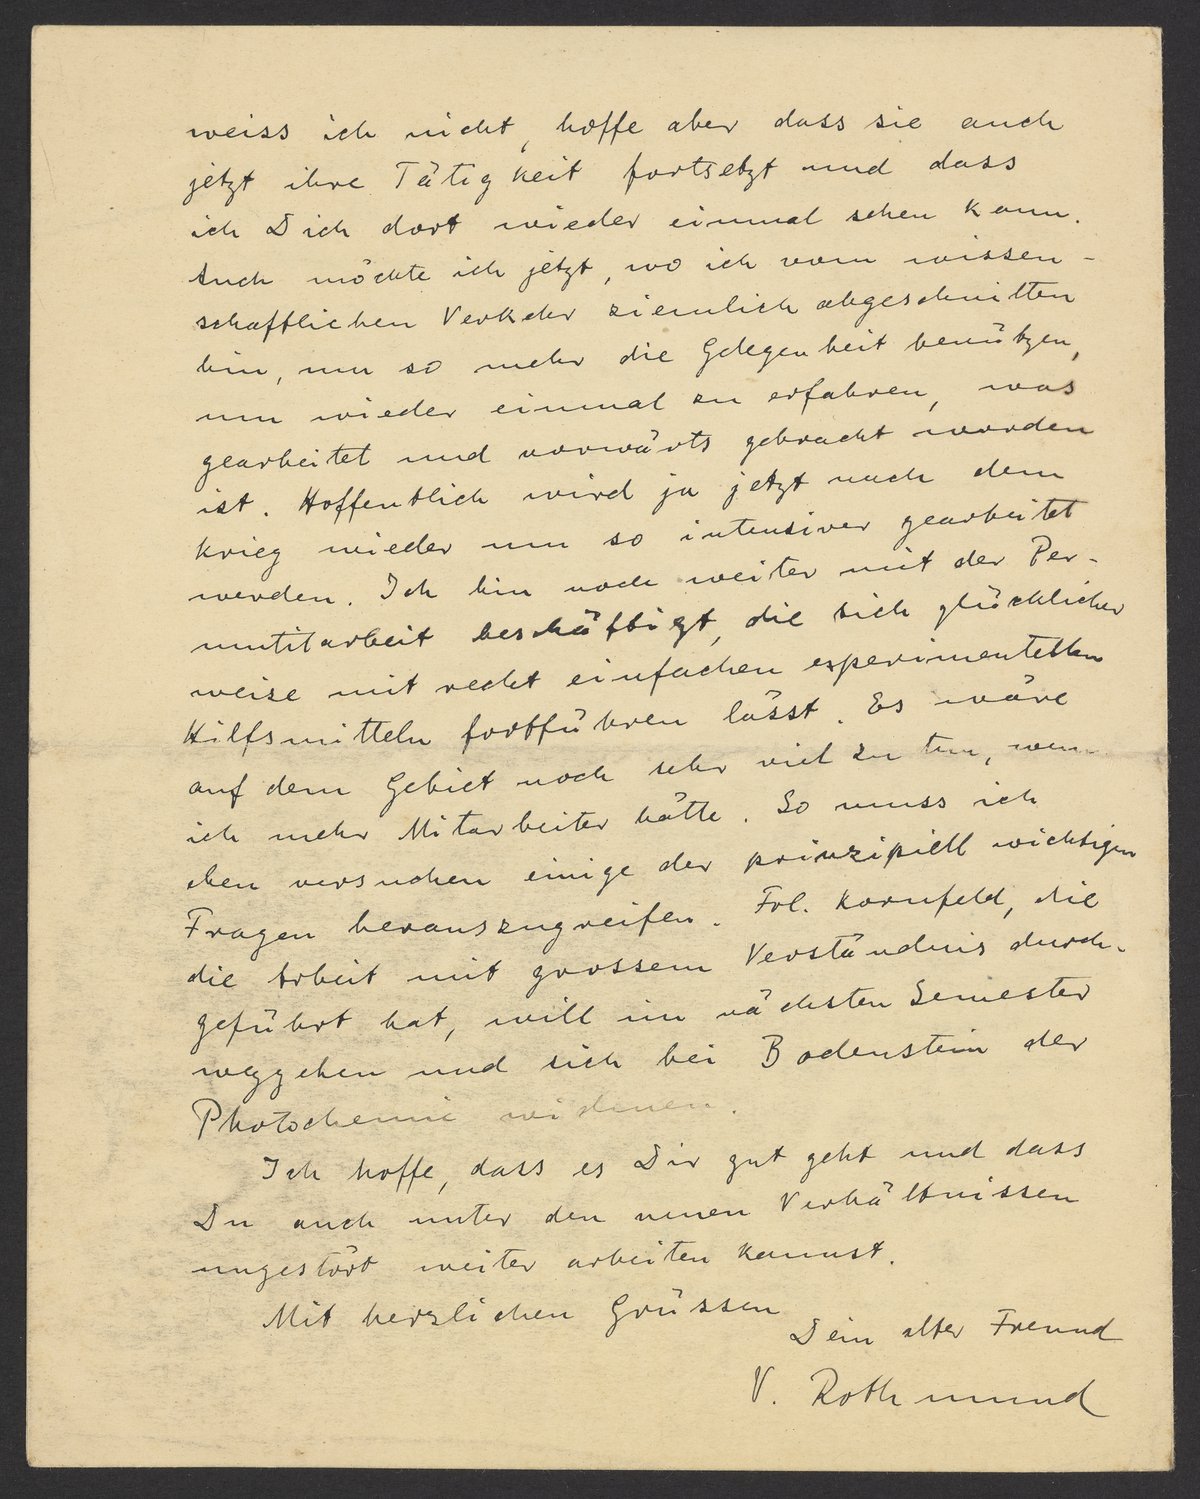 weiss ich nicht, hoffe aber dass sie auch
jetzt ihre Tätigkeit fortsetzt und dass
ich Dich dort wieder einmal sehen kann.
Auch möchte ich jetzt, wo ich vom wissen-
schaftlichen Verkehr ziemlich abgeschnitten
bin, um so mehr die Gelegenheit benützen,
um wieder einmal zu erfahren, was
gearbeitet und vorwärts gebracht worden
ist. Hoffentlich wird ja jetzt nach dem
Krieg wieder um so intensiver gearbeitet
werden. Ich bin noch weiter mit der Per-
mutitarbeit beschäftigt, die sich glücklicher
weise mit recht einfachen experimentellen
Hilfsmitteln fortführen lässt. Es wäre
auf dem Gebiet noch sehr viel zu tun, wenn
ich mehr Mitarbeiter hätte. So muss ich
eben versuchen einige der prinzipiell wichtigen
Fragen herauszugreifen. Frl. Kornfeld, die
die Arbeit mit grossem Verständnis durch-
geführt hat, will im nächsten Semester
weggehen und sich bei Bodenstein der
Photochemie widmen.
Ich hoffe, dass es Dir gut geht und dass
Du auch unter den neuen Verhältnissen
ungestört weiter arbeiten kannst.
Mit herzlichen Grüssen
Dein alter Freund
V. Rothmund